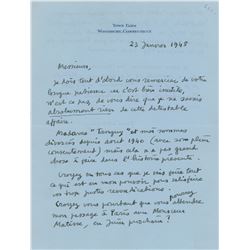 TOWN FARM
WOODBURY, CONNECTICUT
23 Janvier 1948
Messieurs,
Je dois tout d'abord vous remercier de votre
longue patience
n'est ce pas de vous dire que je ne savais
absolument rien de cette détestable
affaire.
Madame "Tanguy" et moi sommes
divorcés depuis août 1940 (avec son plein
consentement) mais cela n'a pas grand
chose à faire dans l'histoire présente.
Croyez en tous cas que je vais faire tout
ce qui est en mon pouvoir pour satisfaire
vos trop justes revendications.
Croyez vous pourtant que vous pouvez attendre
mon passage à Paris avec Monsieur
Matisse, en Juin prochain?